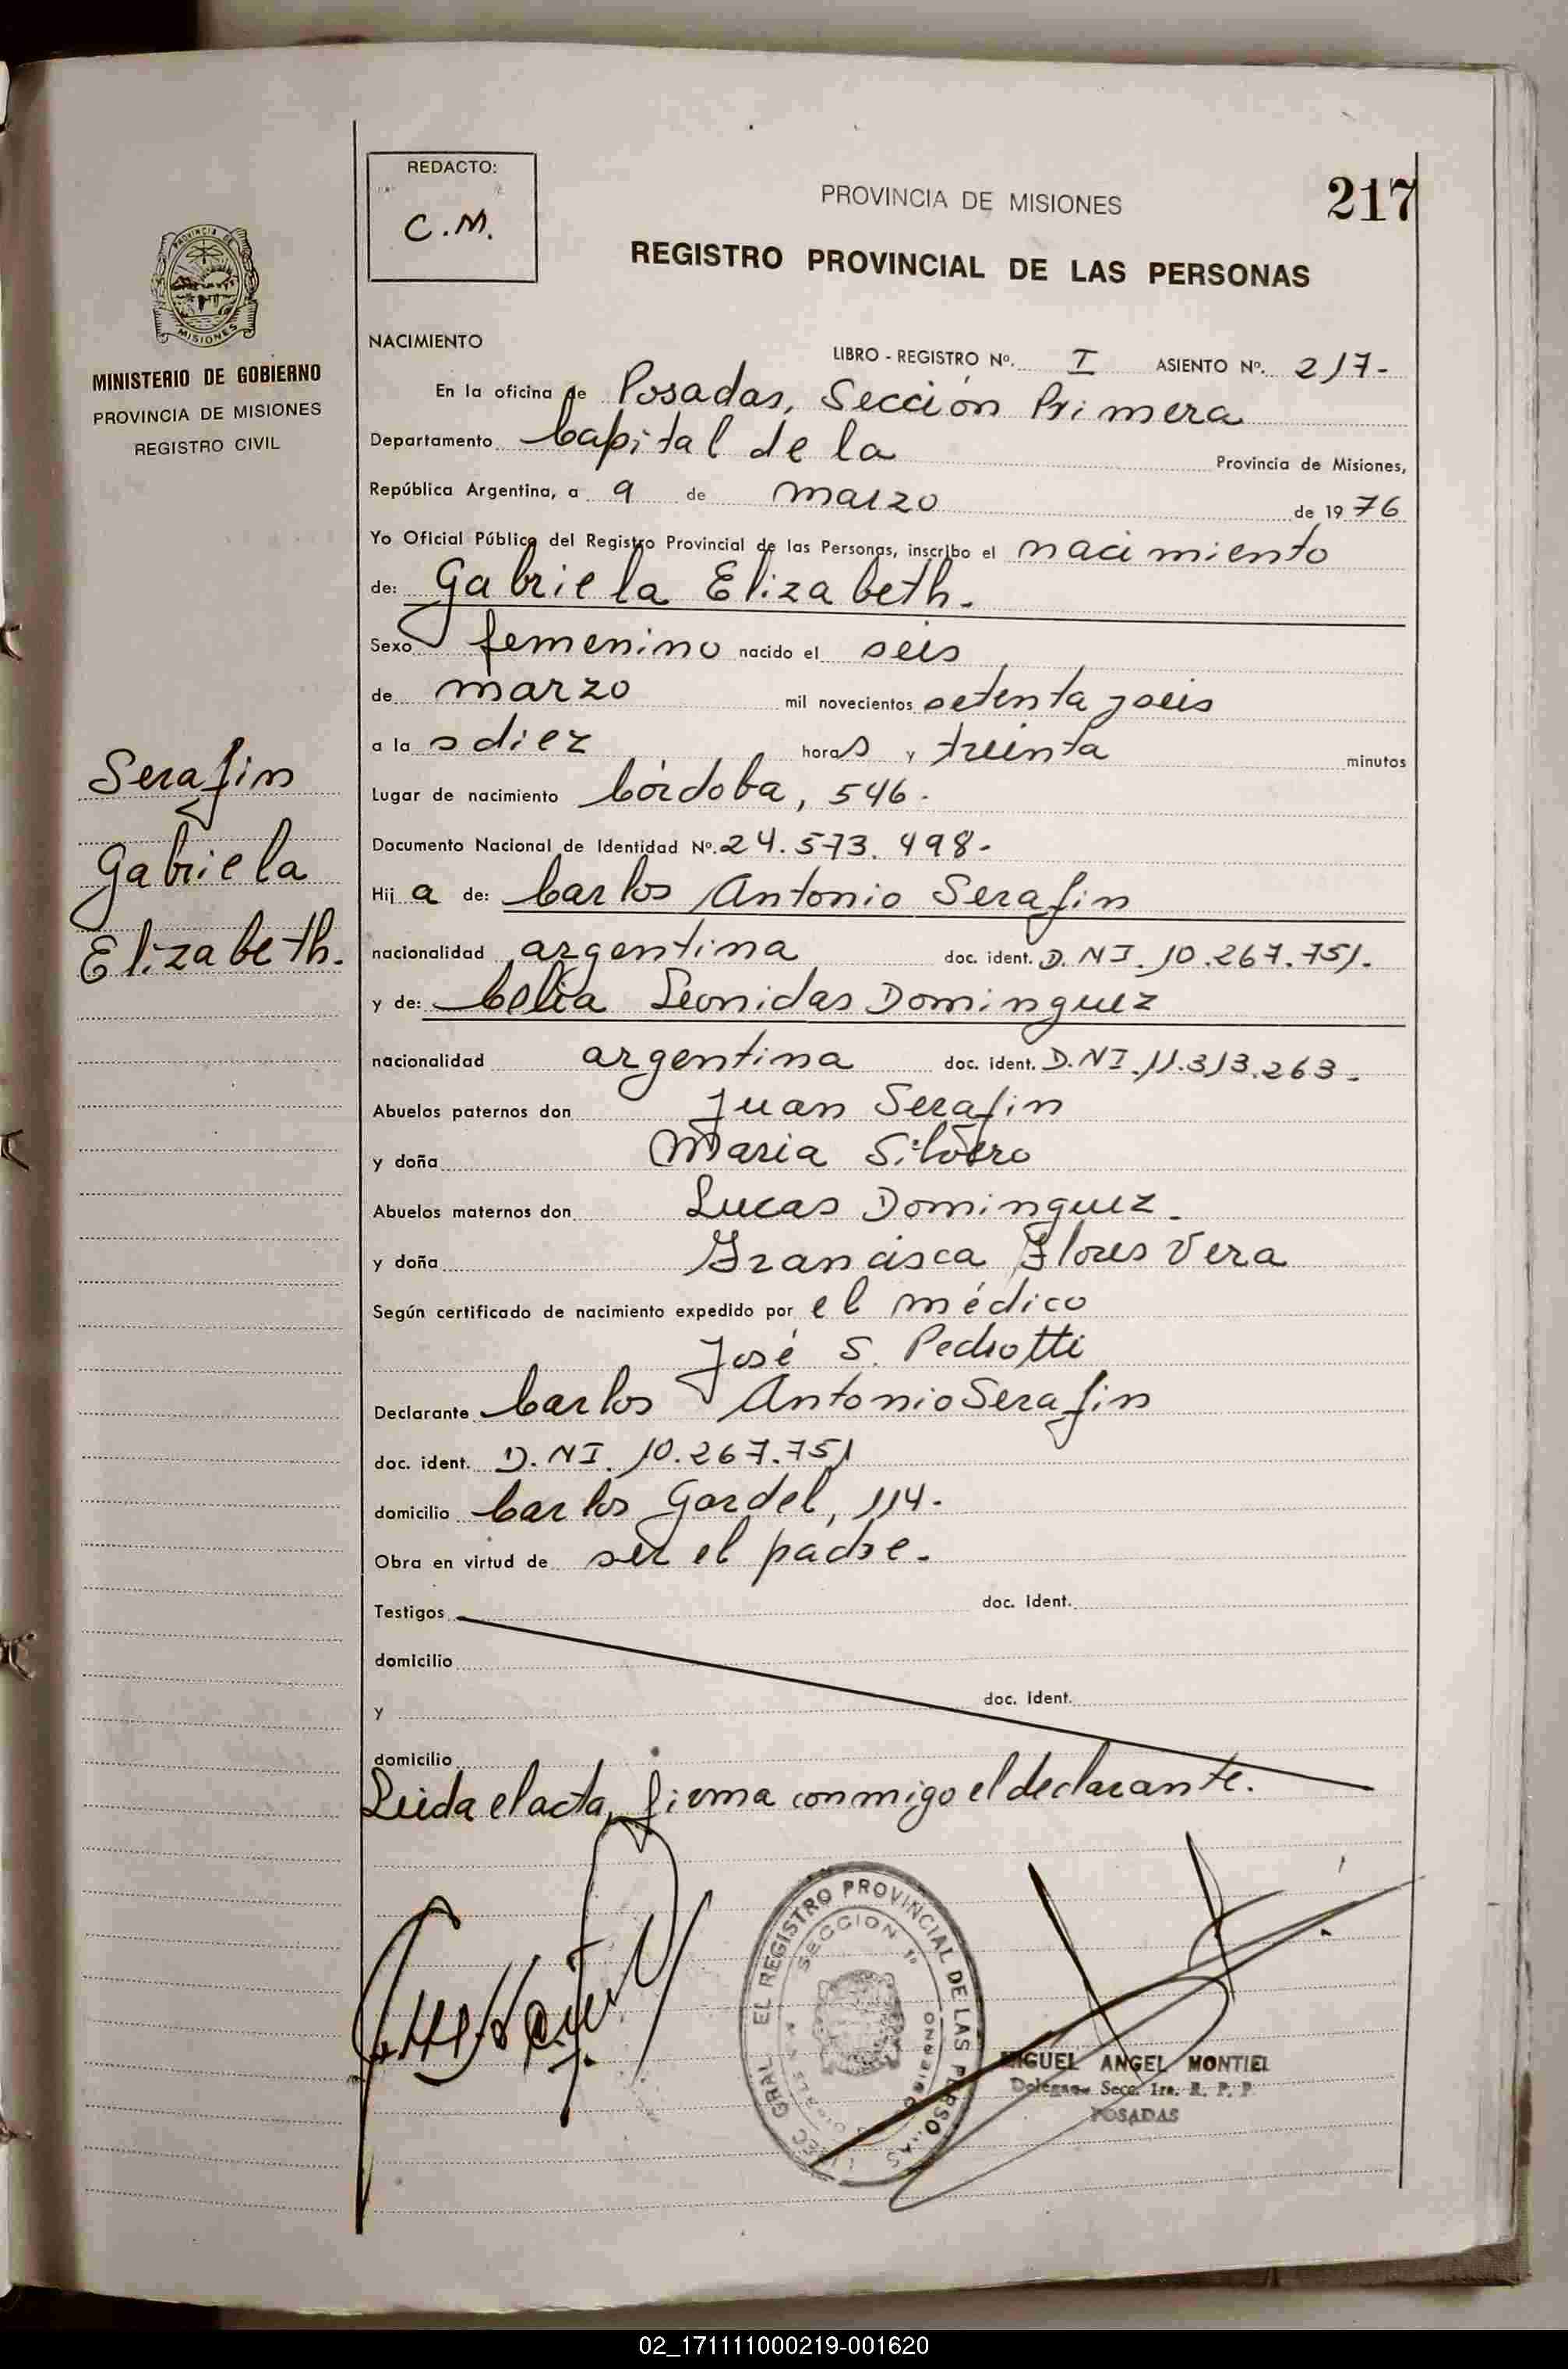 REDACTO:
C.M.
PROVINCIA DE MISIONES
217
REGISTRO PROVINCIAL DE LAS PERSONAS
PROVINCIA DE
MISIONES
MINISTERIO DE GOBIERNO
PROVINCIA DE MISIONES
REGISTRO CIVIL
NACIMIENTO
LIBRO - REGISTRO Nº. I ASIENTO Nº. 217-
En la oficina de Posadas, Sección Primera
Departamento Capital de la Provincia de Misiones,
República Argentina, a 9 de marzo de 1976
Yo Oficial Público del Registro Provincial de las Personas, inscribo el nacimiento
de: Gabriela Elizabeth.
Sexo femenino nacido el seis
de marzo mil novecientos setenta y seis
a las diez horas y treinta minutos
Lugar de nacimiento Córdoba, 546.
Documento Nacional de Identidad Nº. 24.573.498-
Hija de: Carlos Antonio Serafin
nacionalidad argentina doc. ident. D.NI. 10.267.751.
y de: Celia Leonidas Dominguez
nacionalidad argentina doc. ident. D.NI. 11.313.263.
Abuelos paternos don Juan Serafin
y doña Maria Silvero
Abuelos maternos don Lucas Dominguez.
y doña Francisca Flores Vera
Según certificado de nacimiento expedido por el médico
José S. Pedrotti
Declarante Carlos Antonio Serafin
doc. ident. D.NI. 10.267.751
domicilio Carlos Gardel, 114.
Obra en virtud de ser el padre.
Testigos doc. ident.
domicilio
y doc. ident.
domicilio
Leida el acta, firma conmigo el declarante.
Serafin
Gabriela
Elizabeth.
EL REGISTRO PROVINCIAL DE LAS PERSONAS
SECCION 1º
MIGUEL ANGEL MONTIEL
Secc. 1ra. R. P. P
POSADAS
02_171111000219-001620